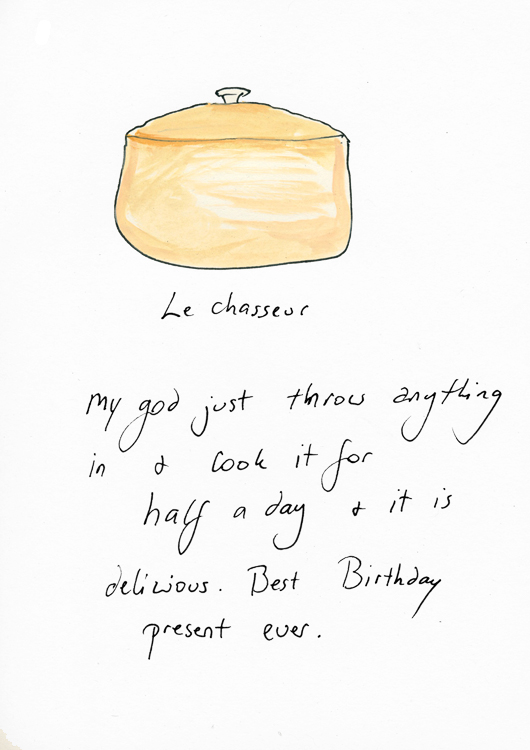 Le chasseur
My god just throw anything
in & cook it for
half a day & it is
delicious. Best Birthday
present ever.